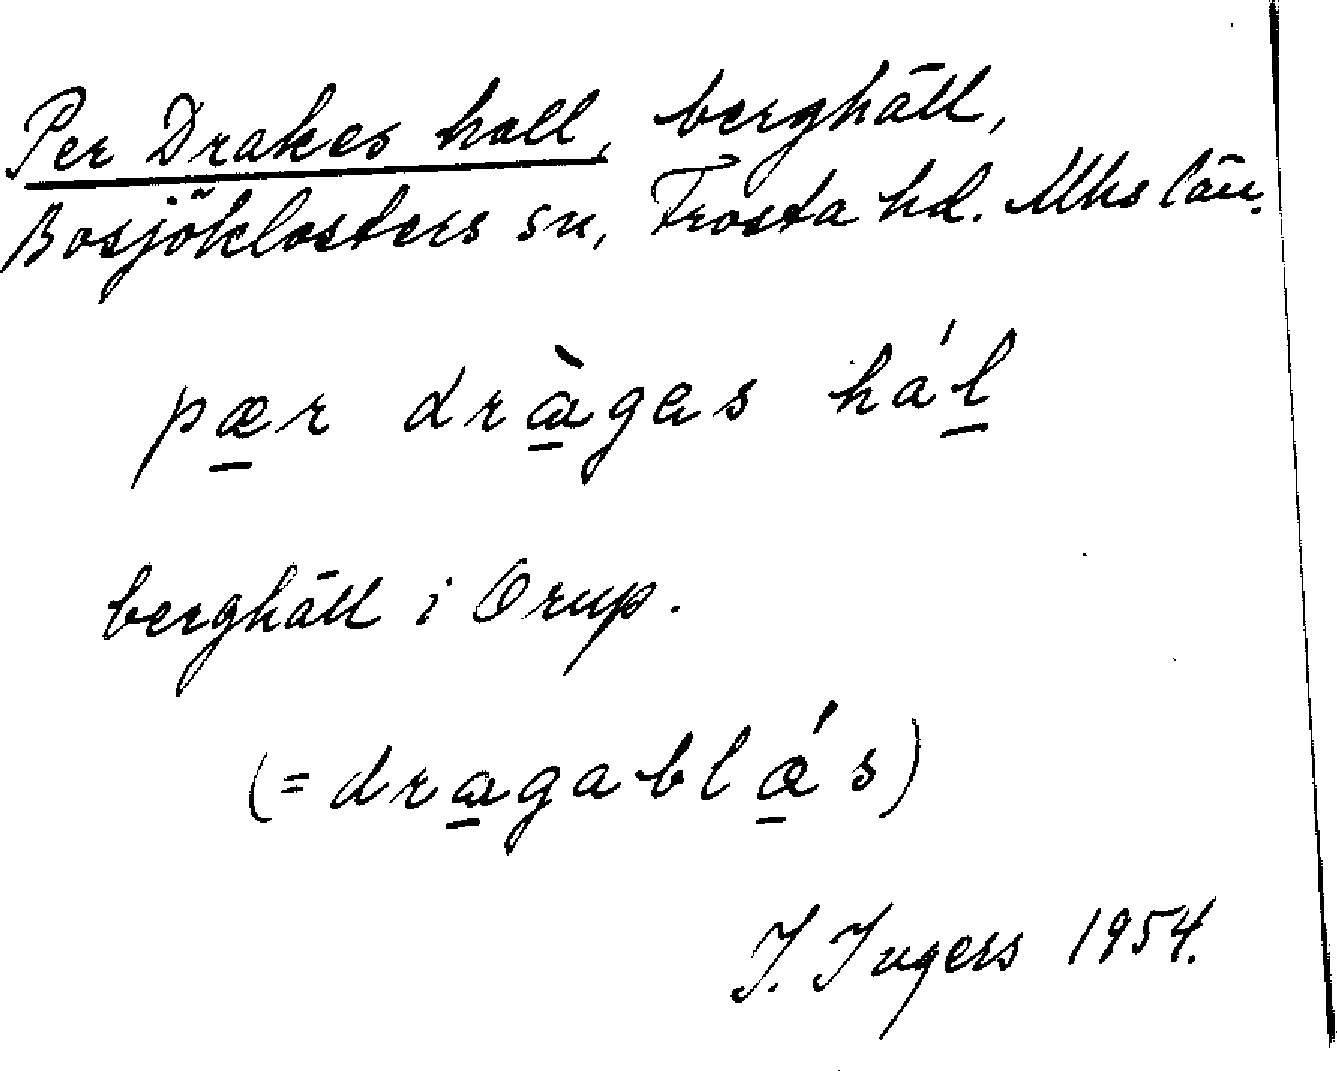 Per Drakes hall, berghäll,
Bosjöklosters sn, Frosta hd. Mhs län.
pær dràgas há'l
berghäll i Orup.
(= dragablǽs)
I. Ingers 1954.